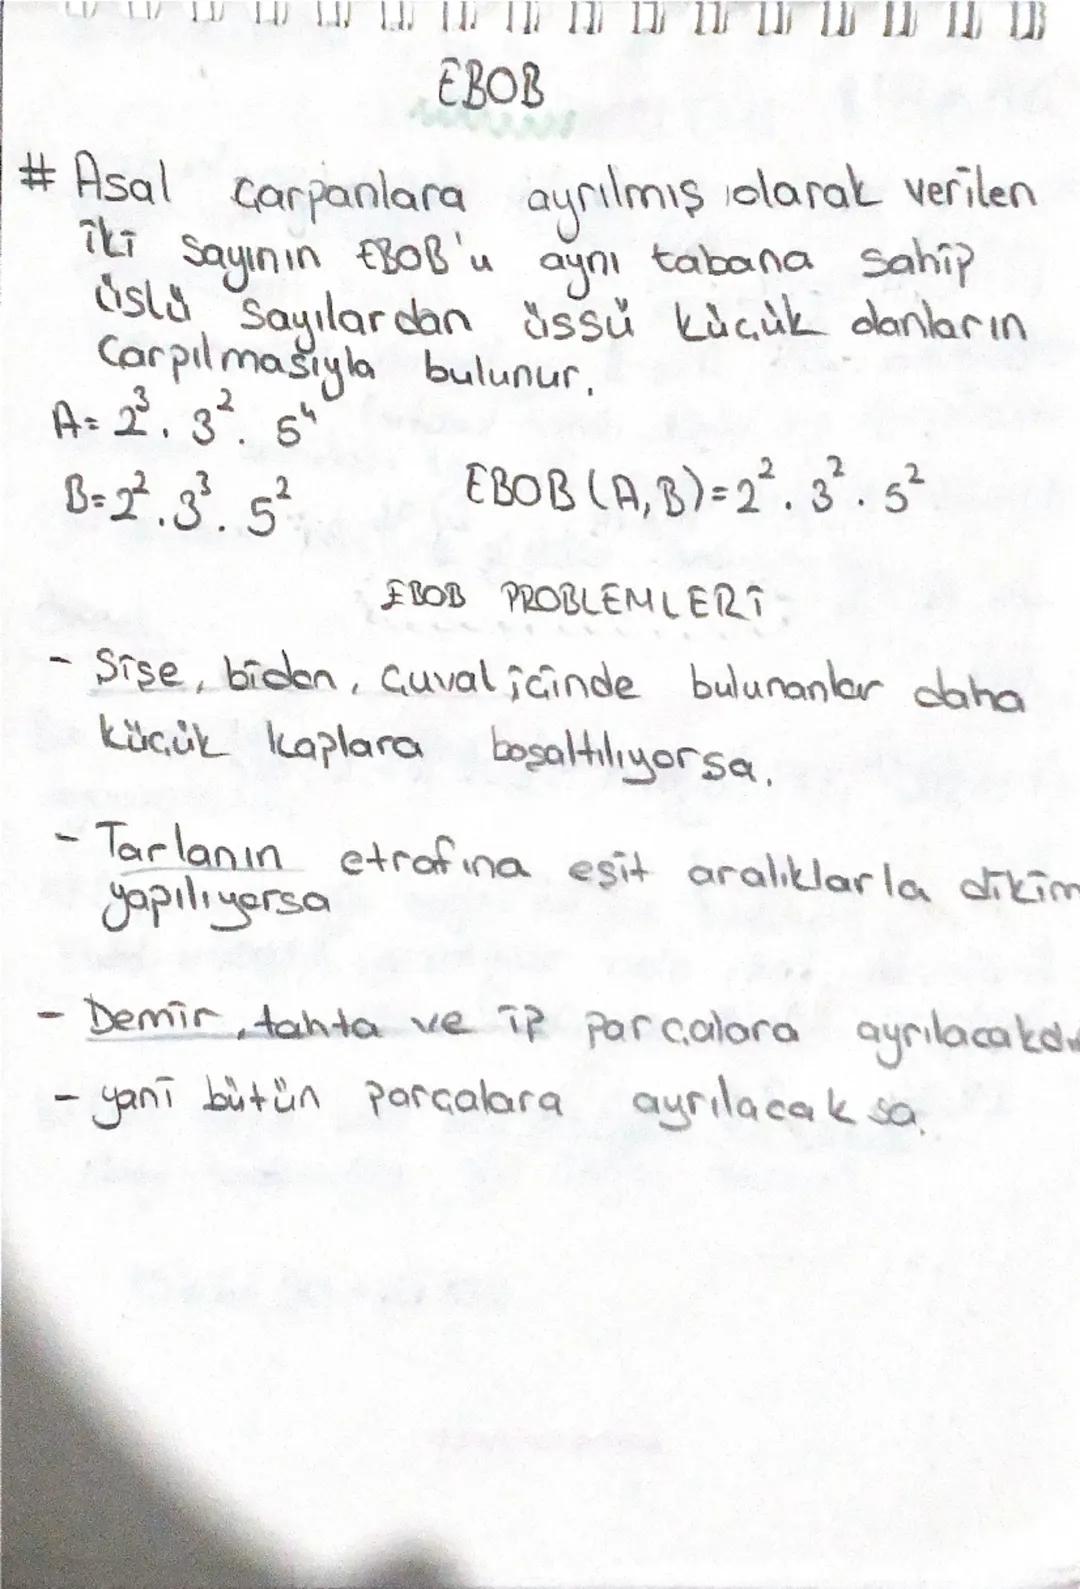 EBOB
# Asal çarpanlara ayrılmış olarak verilen
iki sayının EBOB'u aynı tabana sahip
üslü sayılardan üssü küçük olanların
Çarpılmasıyla bulunur.
A= 2³. 3². 5⁴
B=2².3³. 5²
EBOB (A,B)=2². 3². 5²
EBOB PROBLEMLERİ
- Şişe, bidon, çuval içinde bulunanlar daha
küçük kaplara boşaltılıyorsa.
- Tarlanın etrafına eşit aralıklarla dikim
yapılıyorsa
- Demir, tahta ve ip parçalara ayrılacakdı
- yani bütün parçalara ayrılacaksa.